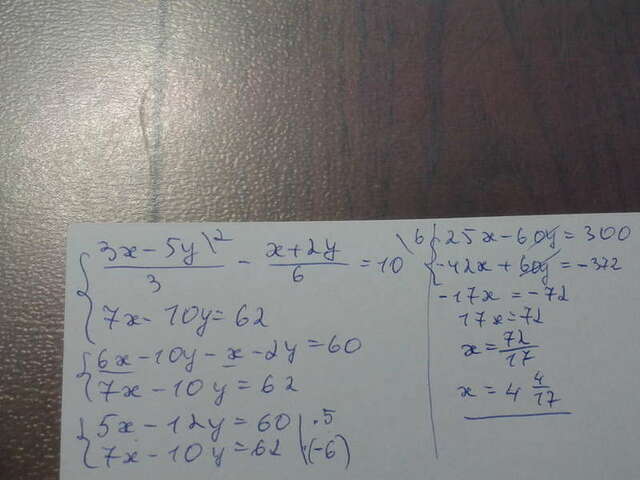 { (3x-5y\²)/3 - (x+2y)/6 = 10 \6
7x-10y=62
{ 6x-10y-x-2y=60
7x-10y=62
{ 5x-12y=60 | ·5
7x-10y=62 | ·(-6)
{ 25x-60y=300
-42x+60y=-372
-17x=-72
17x=72
x=72/17
x=4 4/17